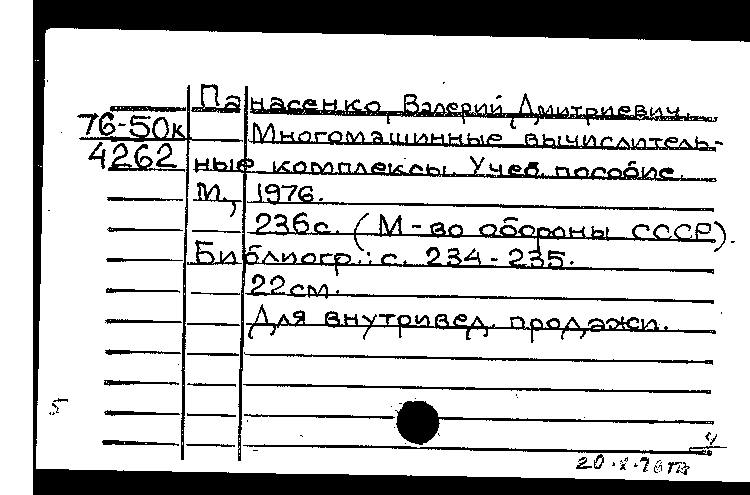 Панасенко, Валерий Дмитриевич.
76-50к Многомашинные вычислитель-
4262 ные комплексы. Учеб. пособие.
М., 1976.
236с. (М-во обороны СССР).
Библиогр.: с. 234-235.
22см.
Для внутривед. продажи.
5
4